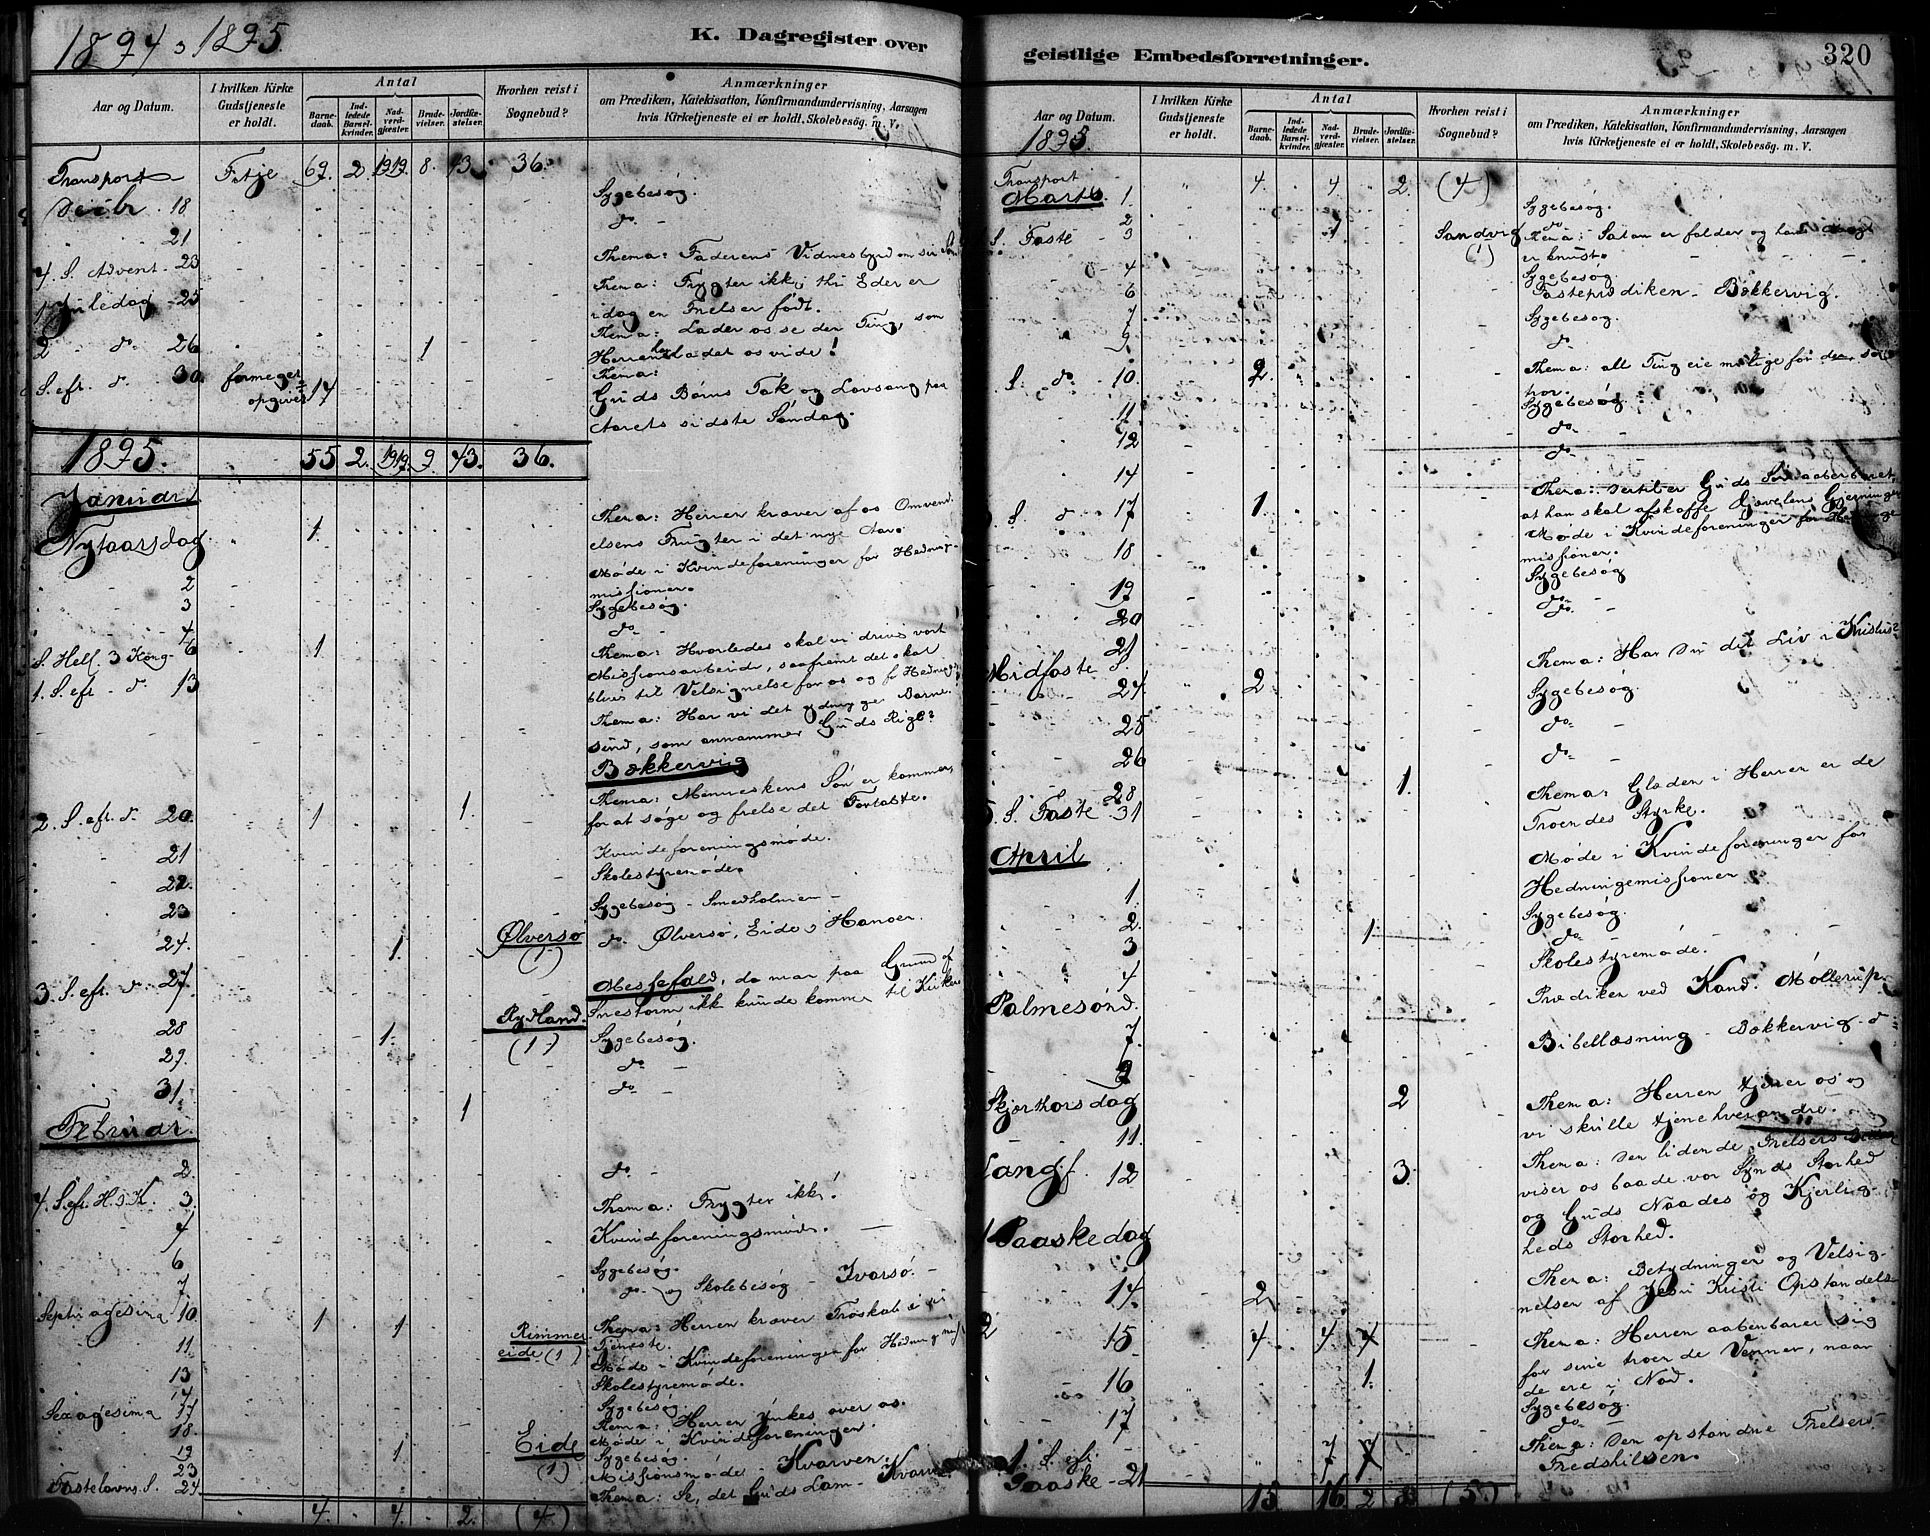 1894 – 1895
K. Dagregister over
Aar og Datum.
I hvilken Kirke Gudstjeneste er holdt.
Antal
Barne-daab.
Ind-ledede Barsel-kvinder.
Nad-verd-gjæster.
Brude-vielser.
Jordfæ-stelser.
Hvorhen reist i Sognebud?
Anmærkninger
om Prædiken, Katekisation, Konfirmandundervisning, Aarsagen
hvis Kirketjeneste ei er holdt, Skolebesøg. m. V.
Transport Fitje 69. 2 1919. 8. 43. 36.
Decbr. 18 Sygebesøg.
21 do
4 S. Advent 23 Thema: Faderens Vidnesbyrd om sin Søn
1 Juledag 25 Thema: Frygter ikke, thi Eder er
idag en Frelser født.
2 do 26 1 Thema: Lader os se den Ting, som
Herren har ladet os vide!
S. eft. do 30 formeget opgivet 14 Thema:
Guds Børns Tak og Lovsang paa
Aarets sidste Søndag.
1895. 55 2. 1919. 9. 43. 36.
Januar
Nytaarsdag 1 Thema: Herren kræver af os Omvend-
elsens Frugter i det nye Aar.
2 Møde i Kvindeforeninger for Hedninge-
missionen.
3 Sygebesøg.
4 do
S. Hell. 3 Kong. 6 1 Thema: Hvorledes skal vi drive vort
Missionsarbeide, saafremt det skal
blive til Velsignelse for os og f. Hedning.
1. S. eft. do 13 Thema: Har vi det ydmyge Barne-
sind, som annammer Guds Rige?
Bækkervig
2. S. eft. do 20. 1 1. Thema: Menneskens Søn er kommen,
for at søge og frelse det Fortabte.
21 Kvindeforeningsmøde.
22. Skolestyremøde.
23 Sygebesøg – Smedholmen –
24. 1. Ølversø (1) do. Ølversø, Eide, Hanøen.
3. S. eft. do 27. Messefald, da man paa Grund af
Snestorm ikk kunde komme til Kirken
28 1. Rydland. (1) Sygebesøg.
29. do
31. 1 do
Februar
2 do
4. S. eft. H. 3 K. 3. Thema: Frygter ikk!
4 Kvindeforeningsmøde.
6 Sygebesøg.
7 do og Skolebesøg – Ivarsø.
Septuagesima 10 1 1 Thema: Herren kræver Troskab i sin
Tjeneste.
11 Rimmereide (1) Møde i Kvindeforeninger for Hedningmis
13 Skolestyremøde.
14 Sygebesøg
Sexagesima 17 Thema: Herren ynkes over os.
18. Møde i Kvindeforeninger
19 1 Eide (1) Sygebesøg.
23 Missionsmøde – Kvarven.
Fastelavns S. 24 Thema: Se, det Guds Lam – Kvarven
4. 4. 2. (4)
geistlige Embedsforretninger.
320
Aar og Datum.
1895.
I hvilken Kirke Gudstjeneste er holdt.
Antal
Barne-daab.
Ind-ledede Barsel-kvinder.
Nad-verd-gjæster.
Brude-vielser.
Jordfæ-stelser.
Hvorhen reist i Sognebud?
Anmærkninger
om Prædiken, Katekisation, Konfirmandundervisning, Aarsagen
hvis Kirketjeneste ei er holdt, Skolebesøg. m. V.
Transport 4. 4 2. (4)
Marts. 1 Sygebesøg.
2 do
S. Faste 3 1 Sandvig (1) Thema: Satan er falden og hans
er knust.
4 Sygebesøg.
6 Fasteprædiken – Bækkervig.
7 Sygebesøg.
9. do
S. do 10. 2. Thema: All Ting ere mulige for den som
tror.
11 Sygebesøg
12 do
14 do
S. do 17 1. Thema: Dertil er Guds Søn aabenbaret,
at han skal afskaffe Djævelens Gjerninger
18 Møde i Kvindeforeninger for Hedninge-
missionen.
19 Sygebesøg
20 do
21 do
Midfaste S. 24. 2 Thema: Har Du dit Liv i Kristus?
25 Sygebesøg.
26 do
28 1. do
5. S. Faste 31 Thema: Glæden i Herren er de
Troendes Styrke.
April
1. Møde i Kvindeforeninger for
Hedningemissionen
2. 1. Sygebesøg.
3 do
4 Skolestyremøde.
Palmesønd. 7. Prædiken ved Kand. Møllerup.
9 Bibellæsning – Bækkervig.
Skjærthorsdag 11. 2 Thema: Herren tjener os og
vi skulle tjene hverandre.
Langf. 12 3. Thema: Den lidende Frelsers
viser os baade vor Synds Storhed
og Guds Naades og Kjerlig-
heds Storhed.
1 Paaskedag 14. 2 Thema: Betydningen og Velsig-
nelsen af Jesu Kristi Opstandelse
2 15 4. 4 Thema: Herren aabenbarer sig
for sine troende Venner, naar
de ere i Nød.
16 1. Sygebesøg.
17 do
1. S. eft. Paaske 21 7 Thema: Den opstandne Frelsers
Fredshilsen.
15 16 2 8 (5)